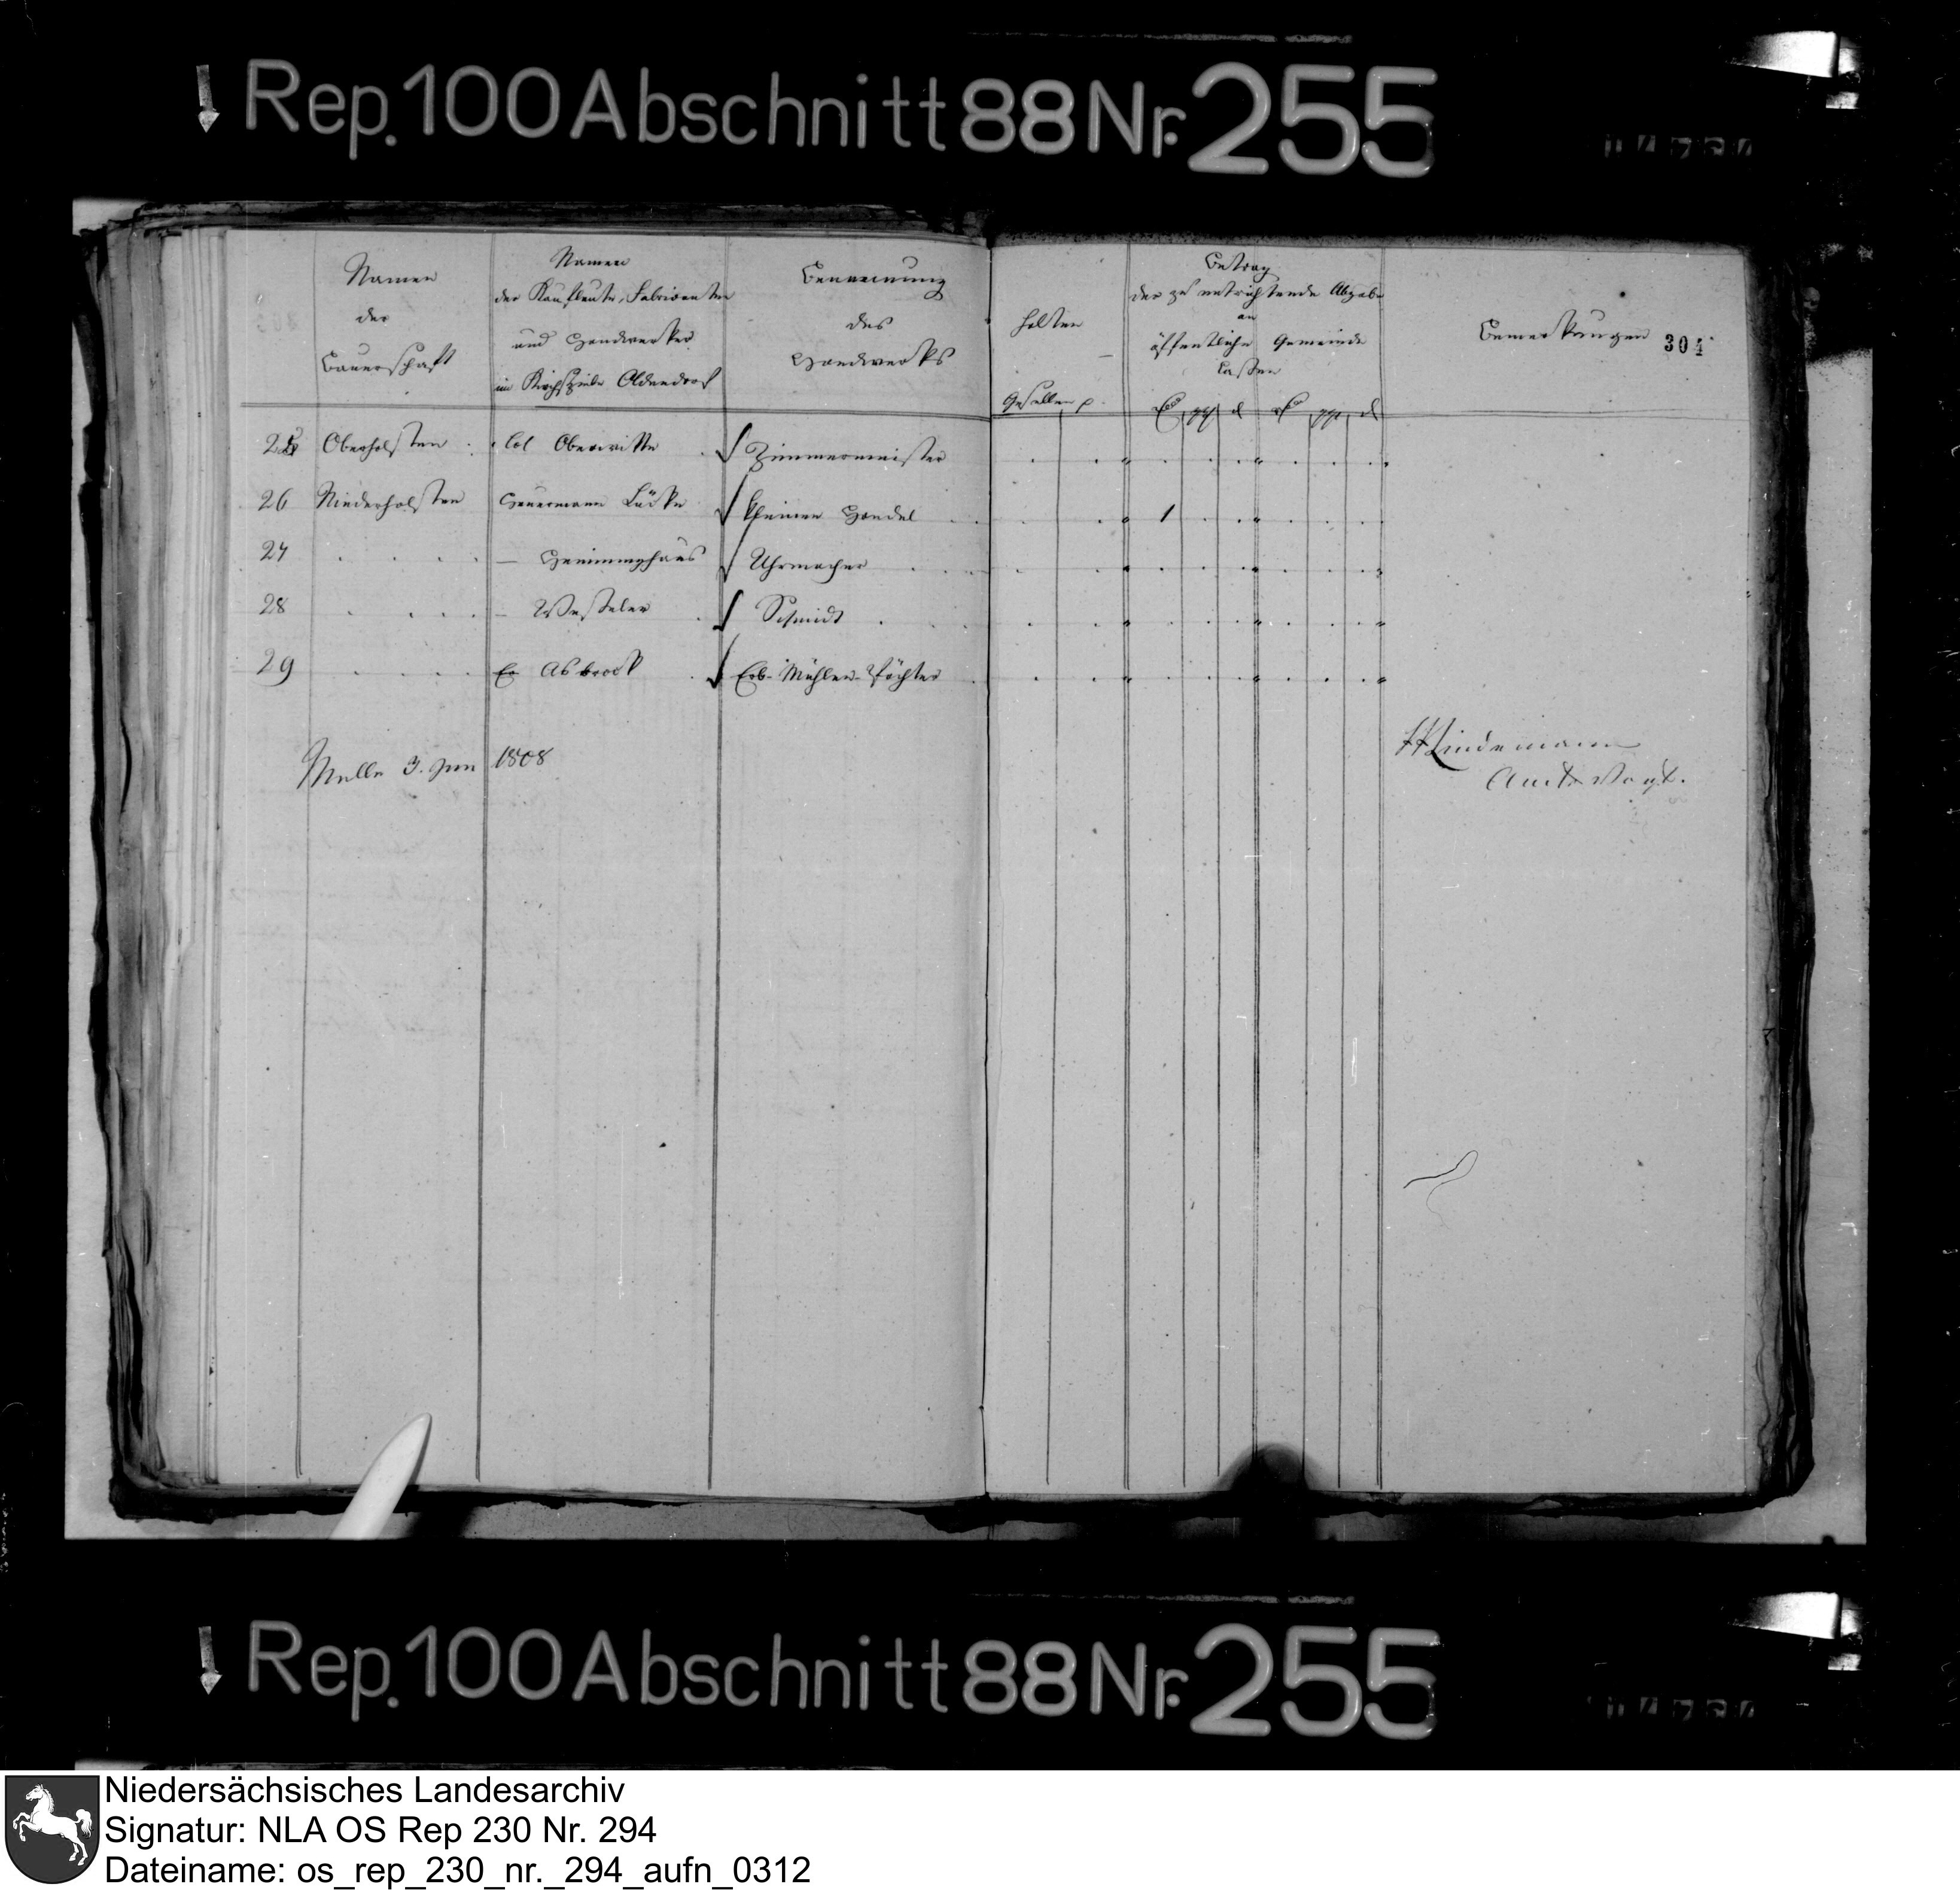 Rep. 100 Abschnitt 88 Nr. 255
Namen
der
Bauerschaft
Namen
der Kaufleute, Fabricanten
und Handwerker
im Kirchspiele Oldendorf
Benennung
des
Handwerks
halten
Gesellen p.
Betrag
der zu entrichtende Abgabe
an
öffentliche Gemeinde
Cassen
Bemerkungen 304
25 Oberholsten Col Oberwitte Zimmermeister
26 Niederholsten Heuermann Lücke kleinen Handel 1
27 — Henninghaus Uhrmacher
28 — Wesseler Schmidt
29 Asbrock Erb-Mühlen-Pächter
Melle 3. Jun 1808
Lindemann
Amts Vogt.
Rep. 100 Abschnitt 88 Nr. 255
Niedersächsisches Landesarchiv
Signatur: NLA OS Rep 230 Nr. 294
Dateiname: os_rep_230_nr._294_aufn_0312